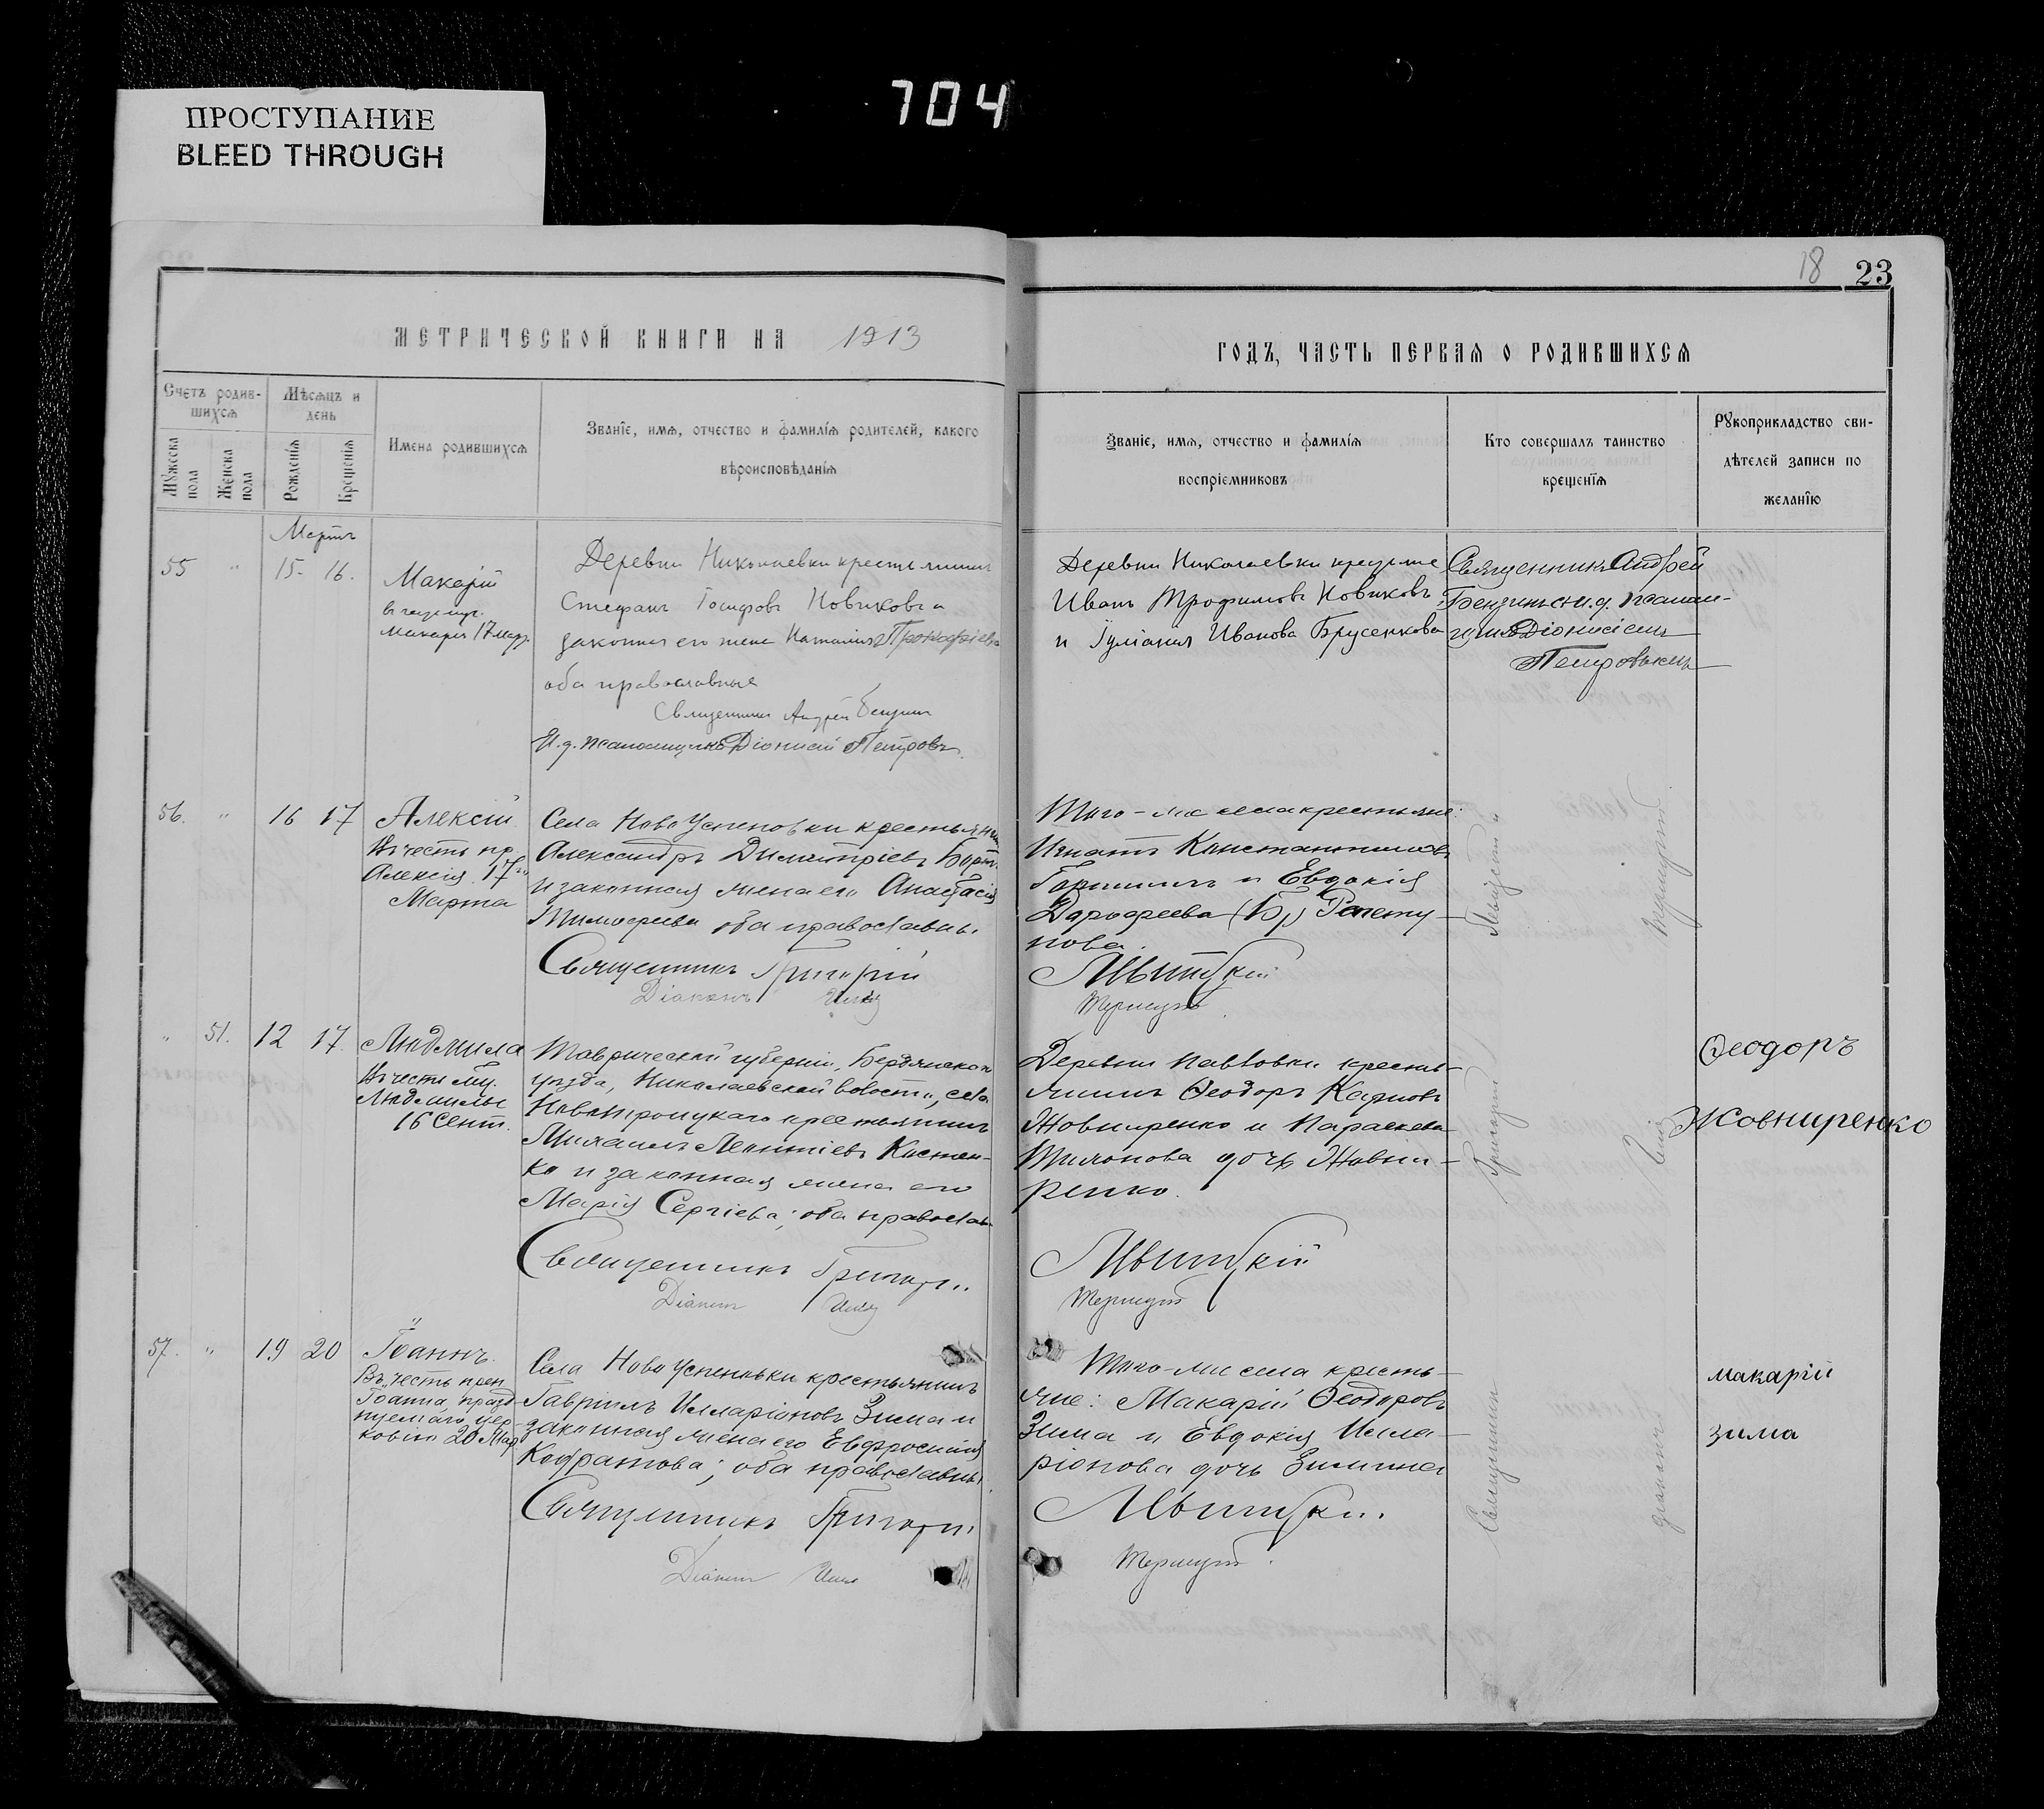 704
ПРОСТУПАНИЕ
BLEED THROUGH
18 23
МЕТРИЧЕСКОЙ КНИГИ НА 1913
ГОДЪ, ЧАСТЬ ПЕРВАЯ О РОДИВШИХСЯ
Счетъ родив-
шихся
Мужеска пола
Женска пола
Мѣсяцъ и
день
Рожденія
Крещенія
Имена родившихся
Званіе, имя, отчество и фамилія родителей, какого
вѣроисповѣданія
Званіе, имя, отчество и фамилія
воспріемниковъ
Кто совершалъ таинство
крещенія
Рукоприкладство сви-
дѣтелей записи по
желанію
Мартъ
55 " 15. 16.
Макарій
Макарія 17 мар.
Деревни Николаевки крестьянинъ
Стефанъ Іосифовъ Новиковъ и
законная его жена Наталія
оба православные
Священникъ Андрей
И. д. псаломщика Діонисій Петровъ.
Деревни Николаевки крестьяне
Иванъ Трофимовъ Новиковъ
и Іуліанія Иванова Брусенкова
Священникъ Андрей
и. д. псалом-
щика Діонисіемъ
Петровымъ
56. " 16 17
Алексій
Въ честь пр.
Алексія 17го
Марта
Села Ново Успеновки крестьянинъ
Александръ Димитріевъ
и законная жена его Анастасія
Тимофеева оба православн.
Священникъ Григорій
Діаконъ
Того-же села крестьяне:
Игнатъ Константиновъ
и Евдокія
Дорофеева
нова.
" 51. 12 17.
Людмила
Въ честь му.
Людмилы
16 Сент.
Таврической губерніи, Бердянскаго
уѣзда, Николаевской волости, села
Новотроицкаго крестьянинъ
Михаилъ Леонтіевъ Костен-
ко и законная жена его
Марія Сергіева; оба православ.
Священникъ Григорій
Діаконъ
Деревни Павловки кресть-
янинъ Ѳеодоръ Карповъ
Жовниренко и Параскева
Тихонова дочь Жовни-
ренко.
Ѳеодоръ
Жовниренко
57. " 19 20
Іоаннъ
Въ честь преп.
Іоанна, празд-
нуемаго цер-
ковію 20 Мар.
Села Ново Успеновки крестьянинъ
Гавріилъ Илларіоновъ Зима и
законная жена его Евфросинія
Кодратова; оба православны.
Священникъ Григорій
Діаконъ
Того-же села кресть-
яне: Макарій Ѳеодоровъ
Зима и Евдокія Илла-
ріонова дочь Зимина
Священникъ
Григорій
діаконъ
макарій
зима